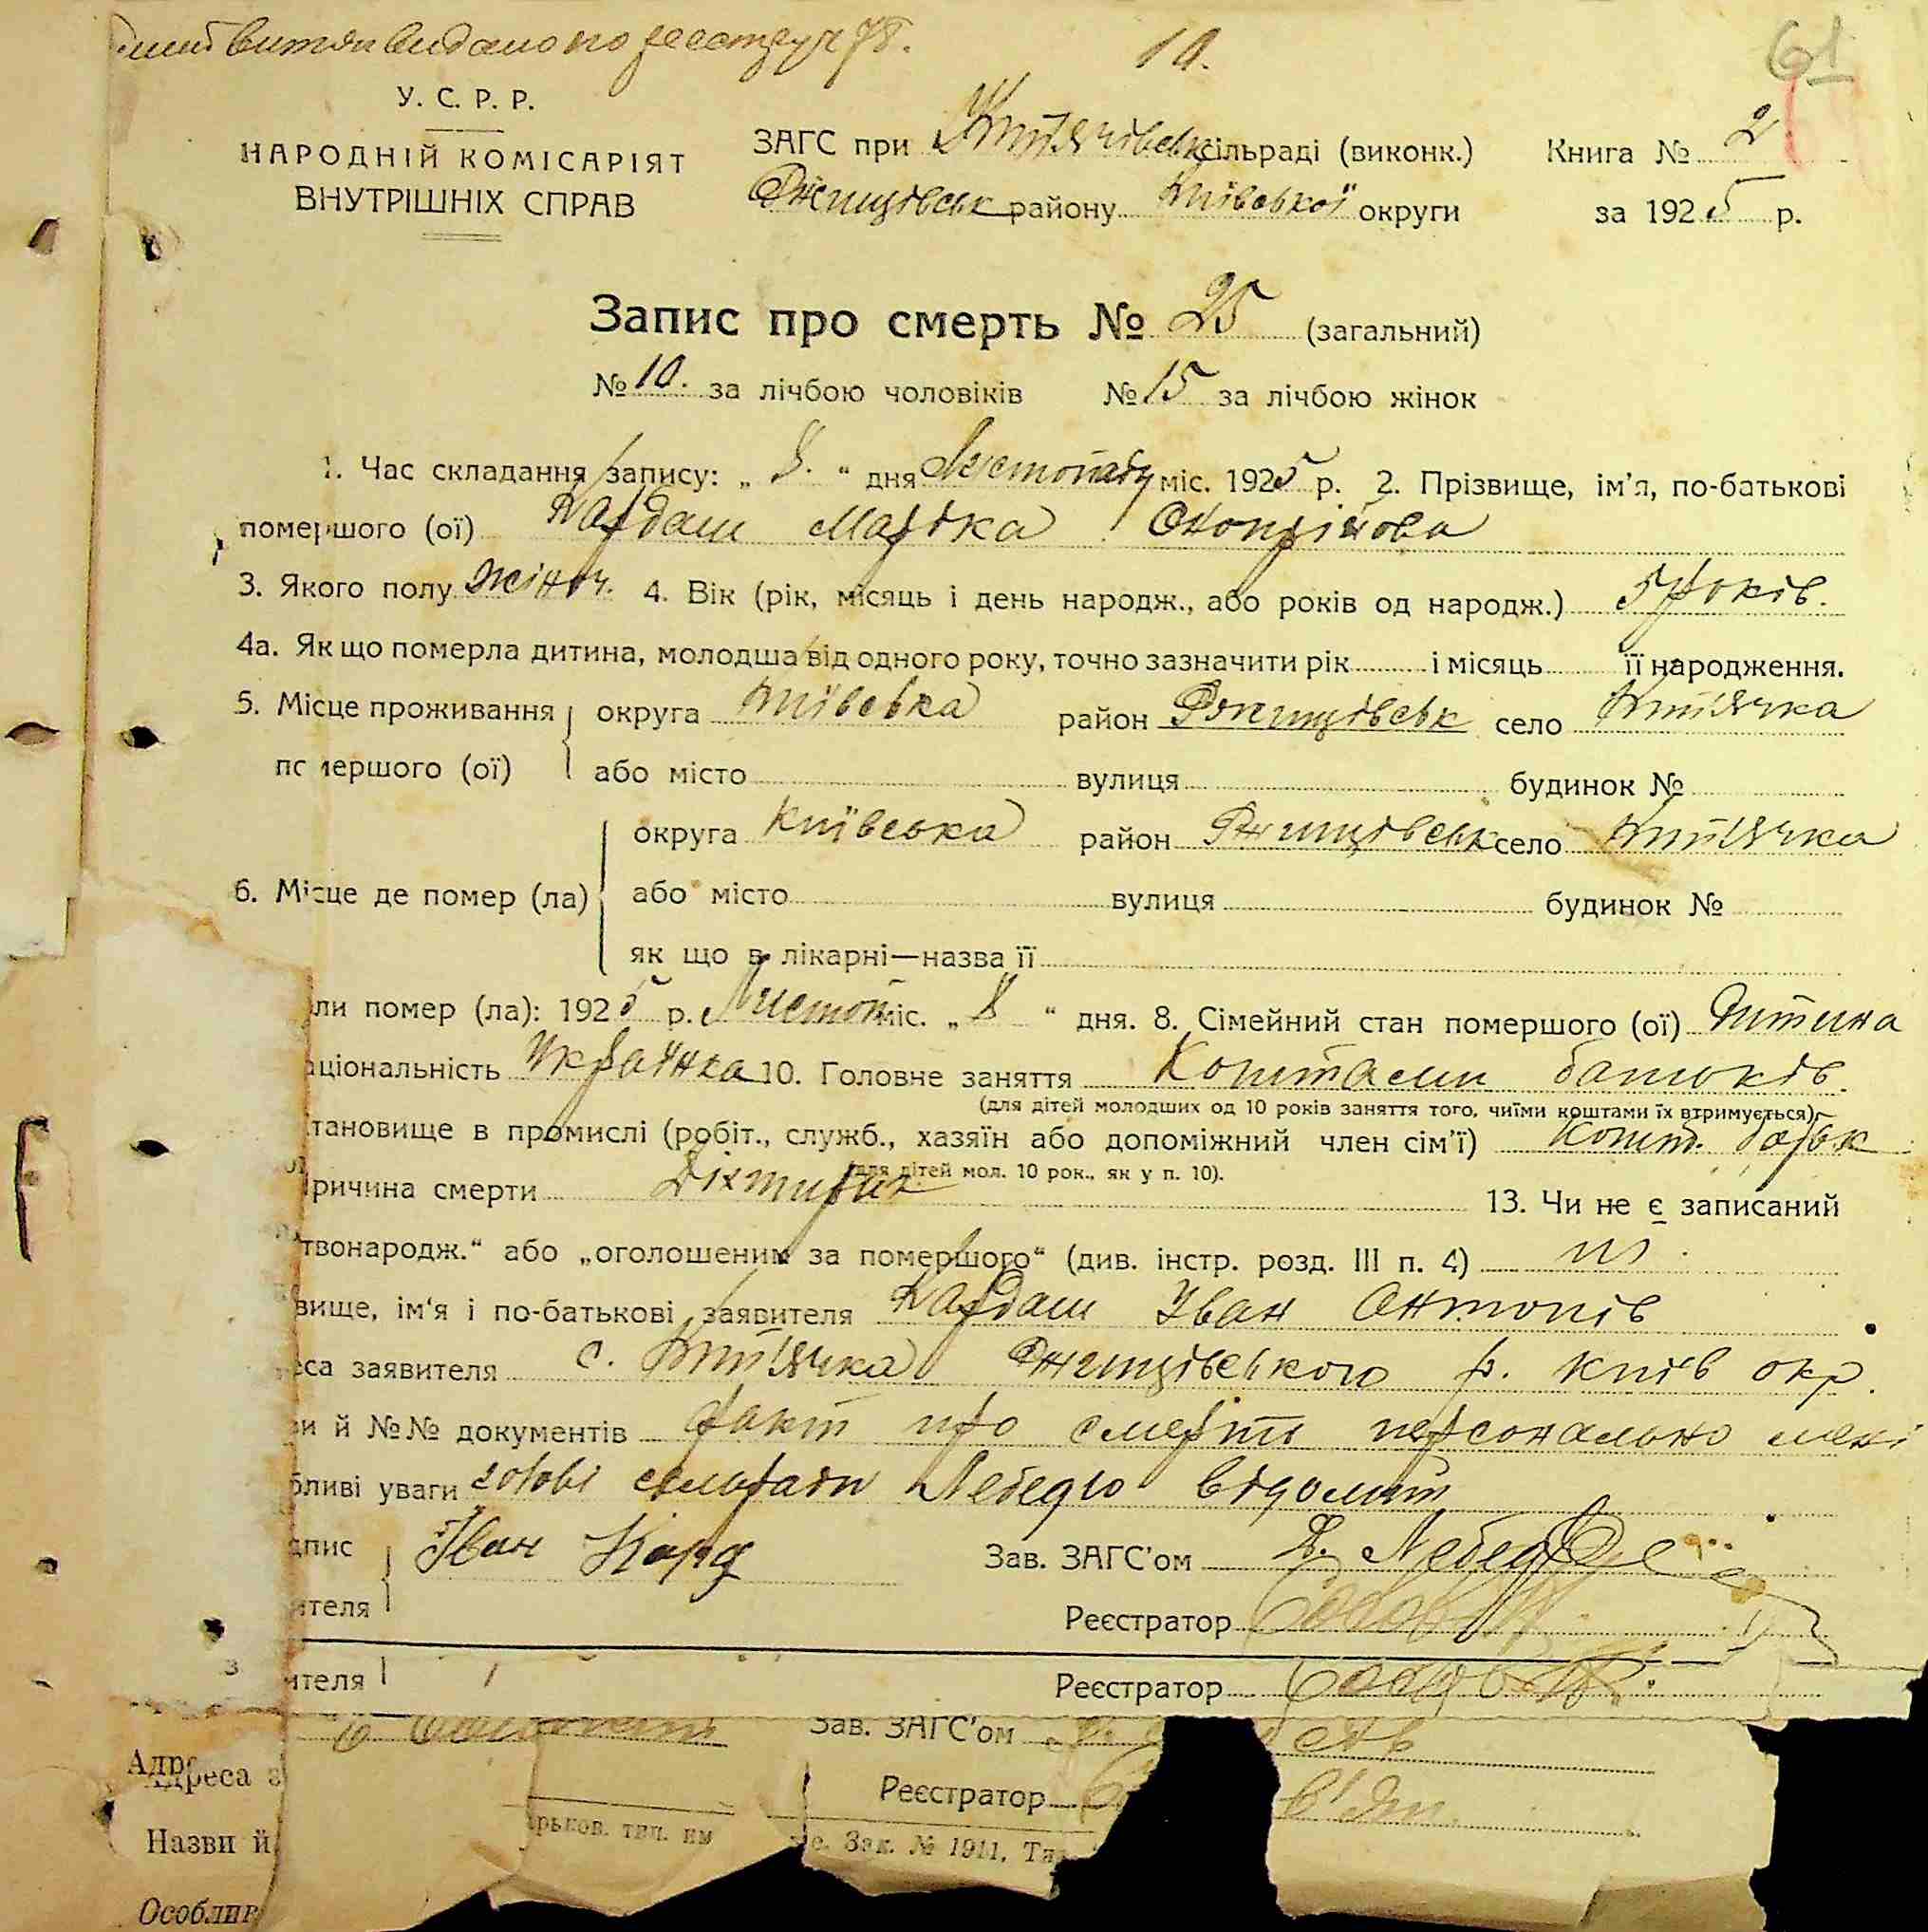 витяг видано по реєстру 78. 10. 61
У. С. Р. Р.
НАРОДНІЙ КОМІСАРІЯТ
ВНУТРІШНІХ СПРАВ
ЗАГС при сільраді (виконк.) Книга № 2
Ржищівськ району Київської округи за 1925 р.
Запис про смерть № 25 (загальний)
№ 10. за лічбою чоловіків № 15 за лічбою жінок
1. Час складання запису: „ 8. “ дня Листопаду міс. 1925 р. 2. Прізвище, ім'я, по-батькові
помершого (ої) Кардаш Марійка
3. Якого полу жіноч. 4. Вік (рік, місяць і день народж., або років од народж.) років.
4а. Як що померла дитина, молодша від одного року, точно зазначити рік і місяць її народження.
5. Місце проживання округа Київська район Ржищівськ село
помершого (ої) або місто вулиця будинок №
округа Київська район Ржищівськ село
6. Місце де помер (ла) або місто вулиця будинок №
як що в лікарні—назва її
ли помер (ла): 1925 р. Листоп міс. „ 8 “ дня. 8. Сімейний стан помершого (ої) Дитина
аціональність Українка 10. Головне заняття Коштами батьків
(для дітей молодших од 10 років заняття того, чиїми коштами їх втримується)
тановище в промислі (робіт., служб., хазяїн або допоміжний член сім'ї) кошт. батьк
(для дітей мол. 10 рок., як у п. 10).
ричина смерти Діхтирик 13. Чи не є записаний
твонародж.“ або „оголошеним за помершого“ (див. інстр. розд. III п. 4) ні.
вище, ім'я і по-батькові заявителя Кардаш Іван Антонів
еса заявителя с. Ржищівського р. Київ окр.
ви й №№ документів факт про смерть персонально мені
бливі уваги голові сельради Лебедю відомий
дпис Іван Кард Зав. ЗАГС'ом Лебедь
ителя Реєстратор
ителя Реєстратор
Зав. ЗАГС'ом
Адр
Адреса з
Реєстратор
арьков. тип. им
Зак. № 1911,
Назви й
Особлив